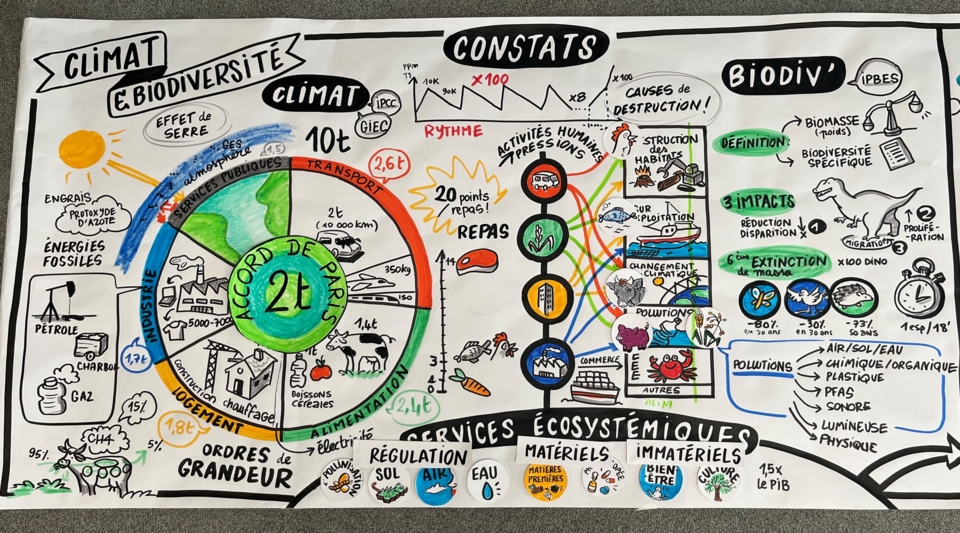 CLIMAT
& BIODIVERSITÉ
CONSTATS
CLIMAT
IPCC
GIEC
10t
EFFET de
SERRE
ENGRAIS
PROTOXYDE
D'AZOTE
ÉNERGIES
FOSSILES
PÉTROLE
CHARBON
GAZ
CH4
95%
5%
15%
atmosphère
SERVICES PUBLIQUES
1,5
TRANSPORT
2,6t
2t
(10 000 km)
350kg
150
INDUSTRIE
1,7t
ACCORD DE PARIS
2t
1,4t
BOISSONS
CÉRÉALES
ALIMENTATION
2,4t
CONSTRUCTION
chauffage
LOGEMENT
1,8t
électricité
ORDRES de
GRANDEUR
PPM
10K
90K
X100
X8
X100
RYTHME
20
points
repas!
REPAS
14
3
ACTIVITÉS HUMAINES
PRESSIONS
CAUSES de
DESTRUCTION!
STRUCTION
des
HABITATS
SUR
EXPLOITATION
CHANGEMENT
CLIMATIQUE
POLLUTIONS
EEE
AUTRES
ALIM
COMMERCE
BIODIV'
IPBES
DÉFINITION
BIOMASSE
(poids)
BIODIVERSITÉ
SPÉCIFIQUE
3 IMPACTS
RÉDUCTION
DISPARITION
1
MIGRATION
2
PROLIFÉ-
RATION
3
6ème EXTINCTION
de massa
X100 DINO
-80%
en 30 ans
-30%
en 30 ans
-73%
50 ANS
1esp/18'
POLLUTIONS
AIR/SOL/EAU
CHIMIQUE/ORGANIQUE
PLASTIQUE
PFAS
SONORE
LUMINEUSE
PHYSIQUE
SERVICES ÉCOSYSTÉMIQUES
RÉGULATION
MATÉRIELS
IMMATÉRIELS
POLLINISATION
SOL
AIR
EAU
MATIÈRES
PREMIÈRES
BIEN
ÊTRE
CULTURE
1,5x
le PIB